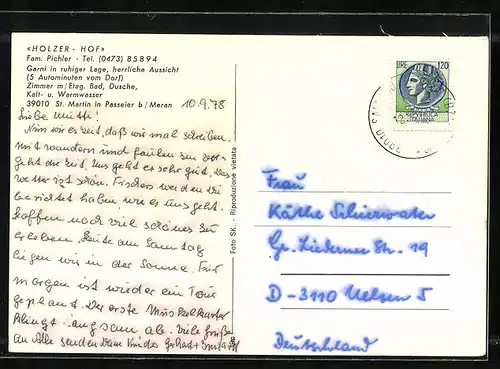 «HOLZER - HOF»
Fam. Pichler - Tel. (0473) 85894
Garni in ruhiger Lage, herrliche Aussicht
(5 Autominuten vom Dorf)
Zimmer m/Etag. Bad, Dusche,
Kalt- u. Warmwasser
39010 St. Martin in Passeier b/Meran
10.9.78
Liebe Mutti!
Nun wirs Zeit, daß wir mal schreiben.
Mit wandern und faulen zen ver-
geht die Zeit. Uns geht es sehr gut, das
Wetter ist schön. Fischers werden dir
berichtet haben wie es uns geht.
Hoffen noch viel schönes zu
erleben. Heute am Samstag
liegen wir in der Sonne. Für
morgen ist wieder ein Tour
geplant. Der erste Muskelkater
klingt langsam ab. Viele Grüße
an Alle senden Deine Kinder Gerhard
Foto SK. - Riproduzione vietata
LIRE 120
REPUBBLICA
ITALIANA
39010
Frau
Käthe
Gr. Liederner Str. 19
D-3110 Uelzen 5
Deutschland